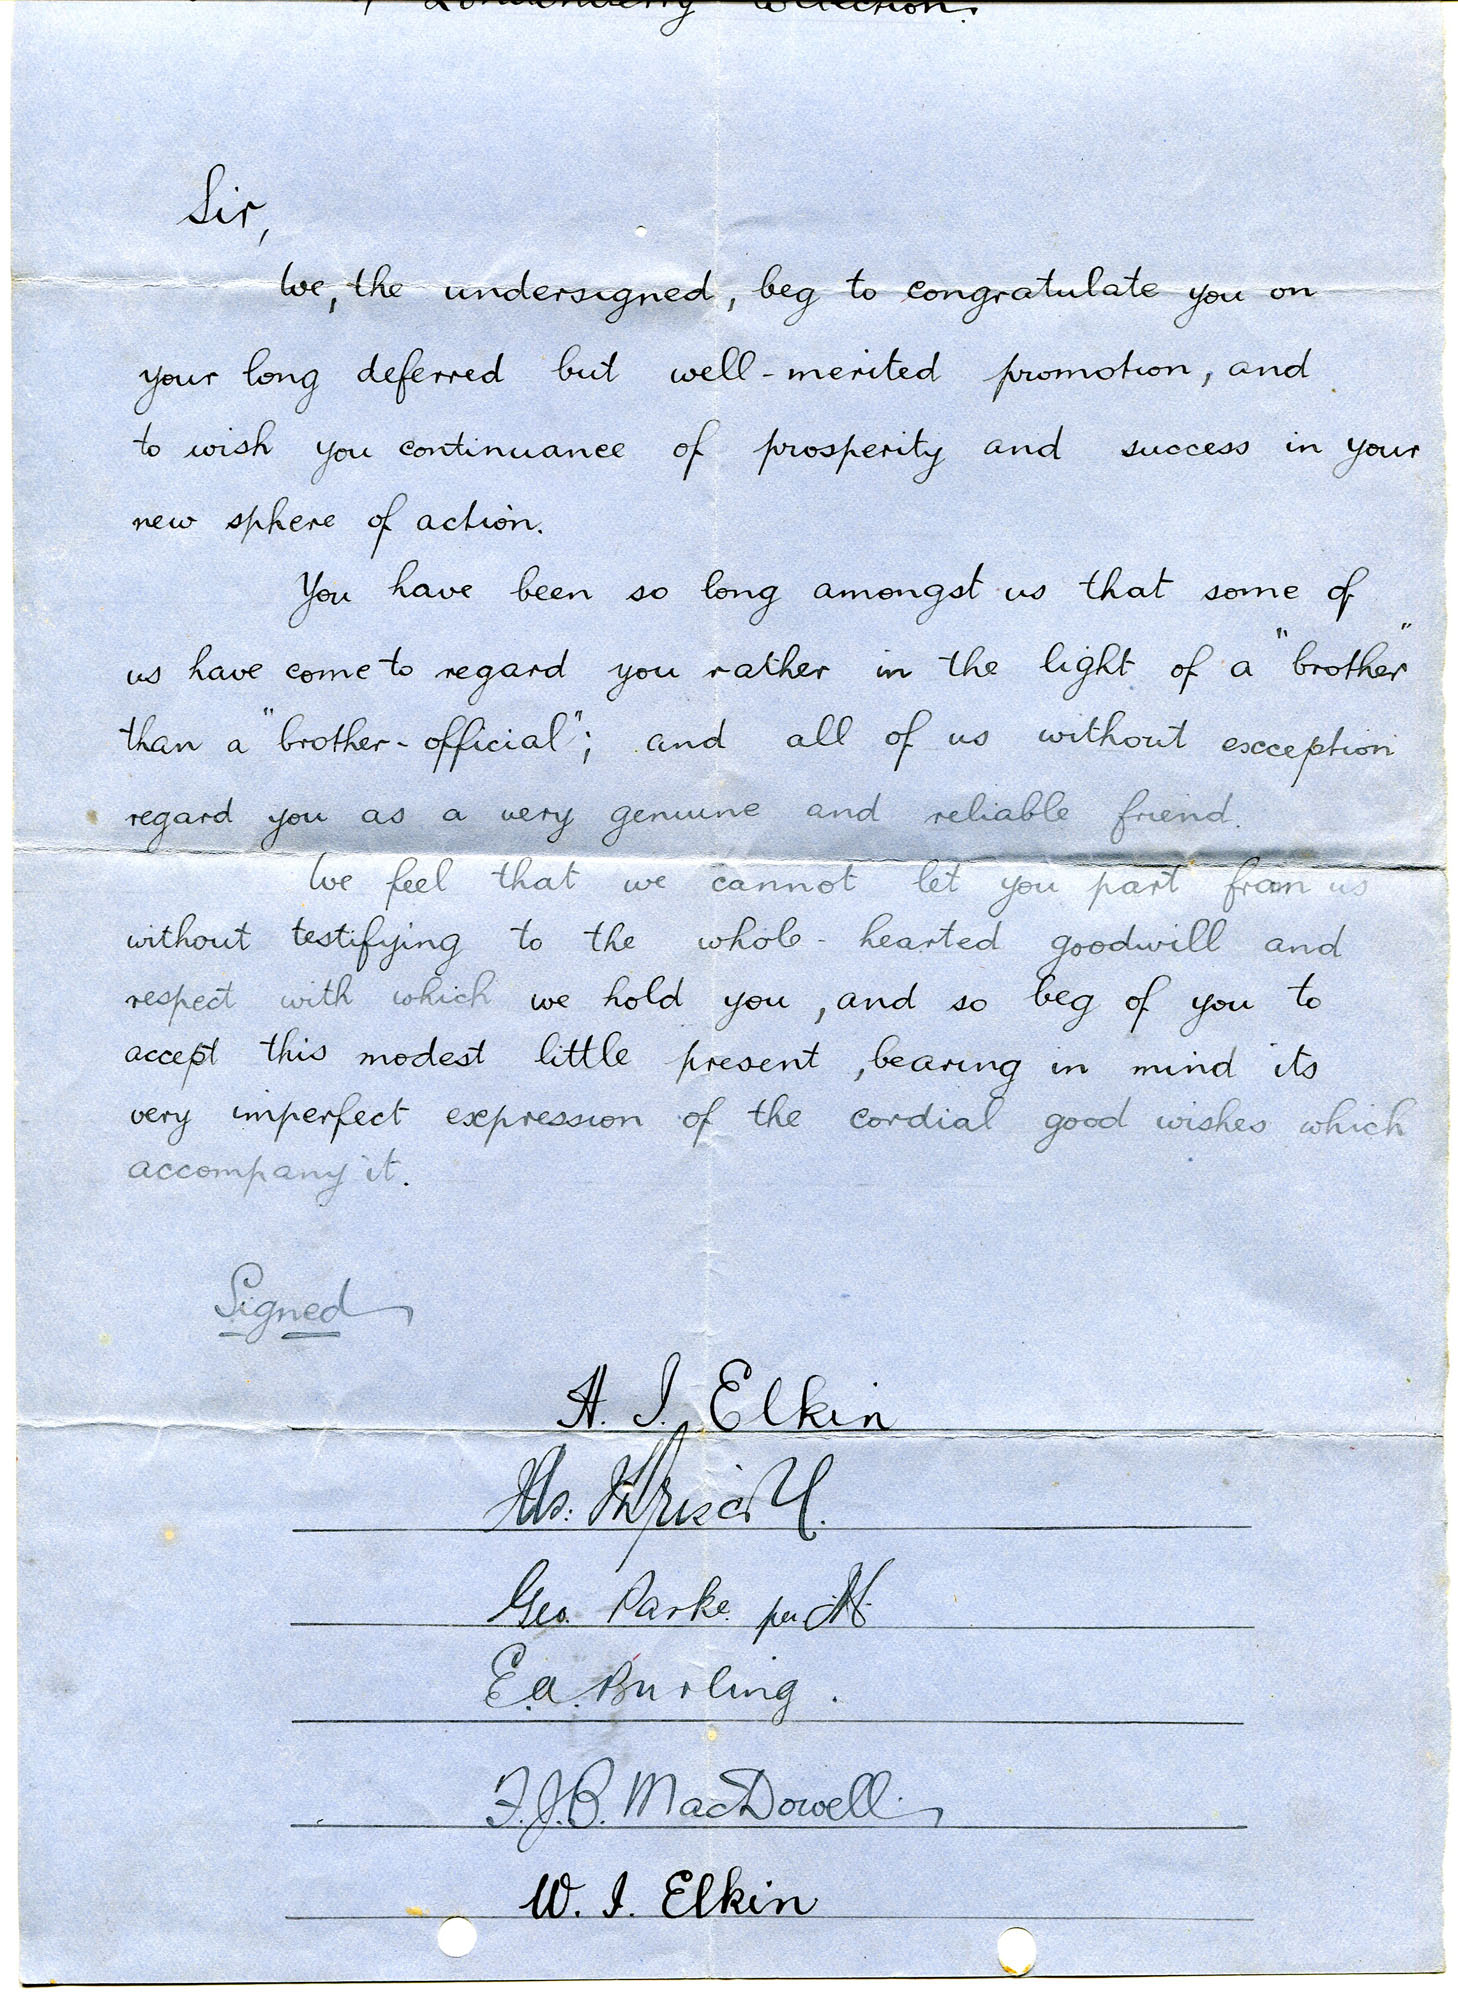 Londonderry Collection.
Sir,
We, the undersigned, beg to congratulate you on
your long deferred but well-merited promotion, and
to wish you continuance of prosperity and success in your
new sphere of action.
You have been so long amongst us that some of
us have come to regard you rather in the light of a "brother"
than a "brother-official"; and all of us without exception
regard you as a very genuine and reliable friend.
We feel that we cannot let you part from us
without testifying to the whole-hearted goodwill and
respect with which we hold you, and so beg of you to
accept this modest little present, bearing in mind its
very imperfect expression of the cordial good wishes which
accompany it.
Signed
H. I. Elkin
Geo. Parke per
E.A. Burling.
F.J.B. MacDowell
W. I. Elkin